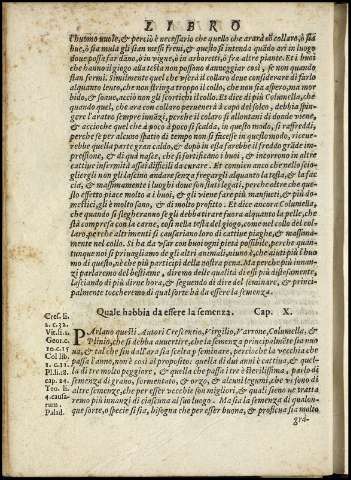 LIBRO
l'huomo vuole, & perciò è necessario che quello che ararà col collaro, ò sia
bue, ò sia mula gli stan messi freni, & questo si intenda quãdo ari in luogo
doue possa far dãno, ò in vigne, ò in arboretti, ò fra altre piante. Et i buoi
che hanno il giogo alla testa non possono danneggiar così, se non quando
stan fermi. Similmente quel che vserà il collaro deue considerare di farlo
al quanto lento, che non stringa troppo il collo, che non sia aspero, ma mor
bido, & soaue, acciò non gli scortichi il collo. Et dice di più Columella, che
quando quel, che ara con collaro peruenerà à capo del solco, debbia spin-
gere l'aratro sempre innãzi, perche il colaro si allontani di donde viene,
& accioche quel che à poco à poco si scalda, in questo modo, si raffreddi,
perche se per alcuno spatio di tempo non si facesse in questo modo, riceue-
rebbe quella parte gran caldo, & dopò in essa farebbe il freddo grãde im-
pressione, & di quà nasce, che si fortificano i buoi, & incorrono in altre
cattiue infermità assai difficili da curare. Et comincio anco che nello scio-
gliergli non gli lascino andare senza fregargli alquanto la testa, & la fac-
cia, & massimamente i luoghi doue son stati legati, perche oltre che que-
sto effetto piace molto à i buoi, & gli viene farsi più mansueti, & più do-
mestici, gli è molto sano, & di molto profitto. Et dice ancora Columella,
che quando si slegheranno se gli debba tirare fuora alquanto la pelle, che
stà compresa con la carne, così nella testa del giogo, come nel collo del col-
laro, perche altrimenti si causariano lor tanto di cattiue piaghe, & massima-
mente nel collo. Si ha da vsar con buoi ogni pietà possibile, perche quan-
tunque noi si preuagliamo de gli altri animali, niuno v'è, che aiuti più l'huo
mo di questo, nè che più partecipi della nostra pena. Ma perche più innan-
zi parlaremo del bestiame, diremo delle qualità di essi più distesamente,
lasciando di più dirne hora, & seguendo di dire del seminare, & principal-
mente toccheremo di qual sorte ha da essere la semenza.
Quale habbia da essere la semenza. Cap. X.
Cres. li.
2. c. 32.
Vir. li. 1.
Geor. c.
10. c. 15
Col. lib.
2. c. 11.
Pl. li. 18.
cap. 24.
Teo. li.
4. causa-
rum.
Pallad.
PArlano questi Autori Crescentio, Virgilio, Varrone, Columella, &
Plinio, che si debba auuertire, che la semenza principalmẽte sia nuo
ua, & tal che sin dall'ara sia scelta p seminare, percioche la vecchia che
passa l'anno, non è così al proposito: quella di due anni è cattiua, & quel-
la di tre molto peggiore, & quella che passa i tre è sterilissima, parlo di
semenza di grano, formentato, & orzo, & alcuni legumi, che vi sono di
altre semenze, che per esser vecchie son migliori, & quali sieno ne tratta
remo più innanzi di ciascuna al suo luogo. Ma sia la semenza di qualon-
que sorte, ò specie si sia, bisogna che per esser buona, & profitteuole sia molto
gra-